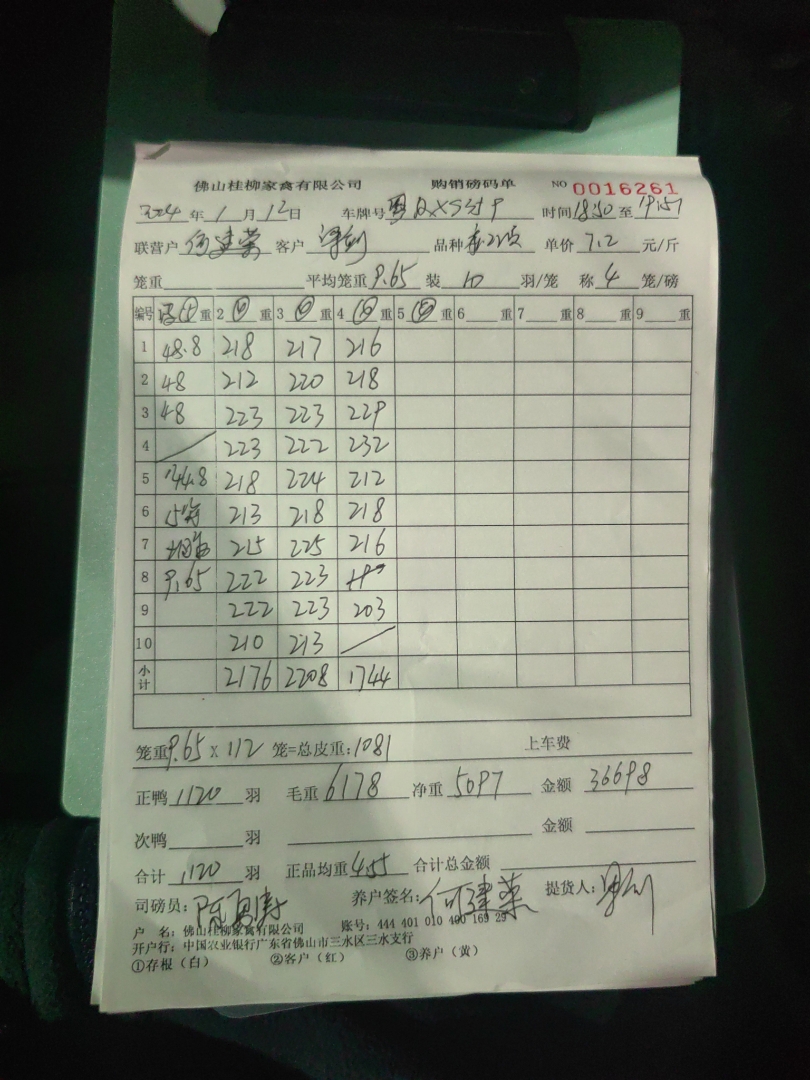 佛山桂柳家禽有限公司 购销磅码单 NO 0016261
2024年1月12日 车牌号 时间18:50至19:57
联营户 何建荣 客户 品种 单价 7.2 元/斤
笼重 平均笼重 9.65 装 10 羽/笼 称 4 笼/磅
编号 重 2 重 3 重 4 重 5 重 6 重 7 重 8 重 9 重
1 48.8 218 217 216
2 48 212 220 218
3 48 223 223 229
4 223 222 232
5 144.8 218 224 212
6 213 218 218
7 215 225 216
8 9.65 222 223
9 222 223 203
10 210 213
小计 2176 2208 1744
笼重 9.65 x 112 笼=总皮重:1081 上车费
正鸭 1120 羽 毛重 6178 净重 5097 金额 36698
次鸭 羽 金额
合计 1120 羽 正品均重 4.55 合计总金额
司磅员: 养户签名: 何建荣 提货人:
户 名: 佛山桂柳家禽有限公司 账号: 444 401 010 400 169 29
开户行: 中国农业银行广东省佛山市三水区三水支行
①存根（白） ②客户（红） ③养户（黄）